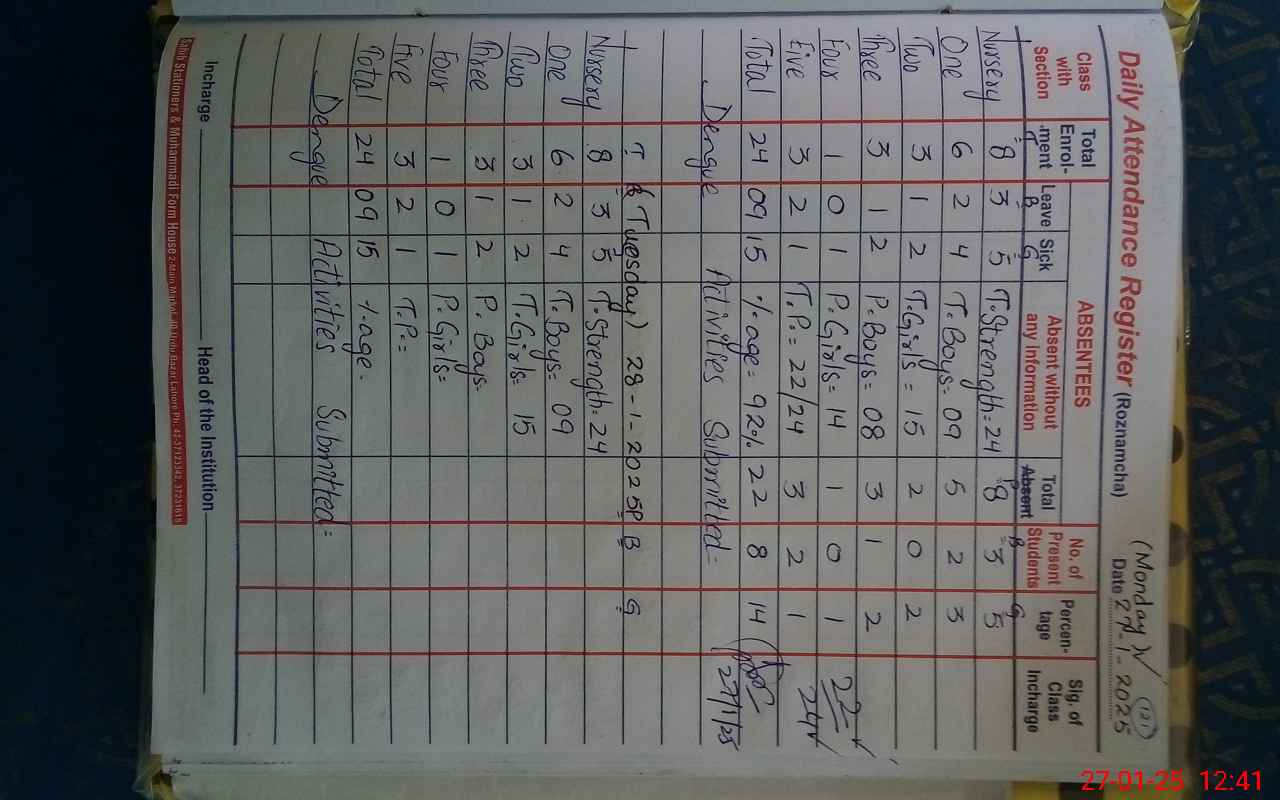 (Monday) (121)
Daily Attendance Register (Roznamcha) Date 27-1-2025
Class with Section Total Enrol-ment ABSENTEES Leave Sick Absent without any Information Total Absent No. of Present Students Percen-tage Sig. of Class Incharge
T B G P B G
Nursery 8 3 5 T.Strength=24 8 3 5
One 6 2 4 T.Boys=09 5 2 3
Two 3 1 2 T.Girls=15 2 0 2
Three 3 1 2 P.Boys=08 3 1 2
Four 1 0 1 P.Girls=14 1 0 1 22
Five 3 2 1 T.P.=22/24 3 2 1 24
Total 24 09 15 %age=92% 22 8 14 27/1/25
Dengue Activities Submitted=
T B (Tuesday) 28-1-2025 P B G
Nursery 8 3 5 T.Strength=24
One 6 2 4 T.Boys=09
Two 3 1 2 T.Girls=15
Three 3 1 2 P.Boys=
Four 1 0 1 P.Girls=
Five 3 2 1 T.P.=
Total 24 09 15 %age=
Dengue Activities Submitted=
Incharge Head of the Institution
Sahib Stationers & Muhammadi Form House
27-01-25 12:41